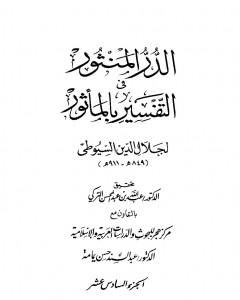 الدر المنثور
في
التفسير بالمأثور
لجلال الدين السيوطي
(٨٤٩هـ - ٩١١هـ)
تحقيق
الدكتور عبد الله بن عبد المحسن التركي
بالتعاون مع
مركز هجر للبحوث والدراسات العربية والإسلامية
الدكتور عبد السند حسن يمامة
الجزء السادس عشر